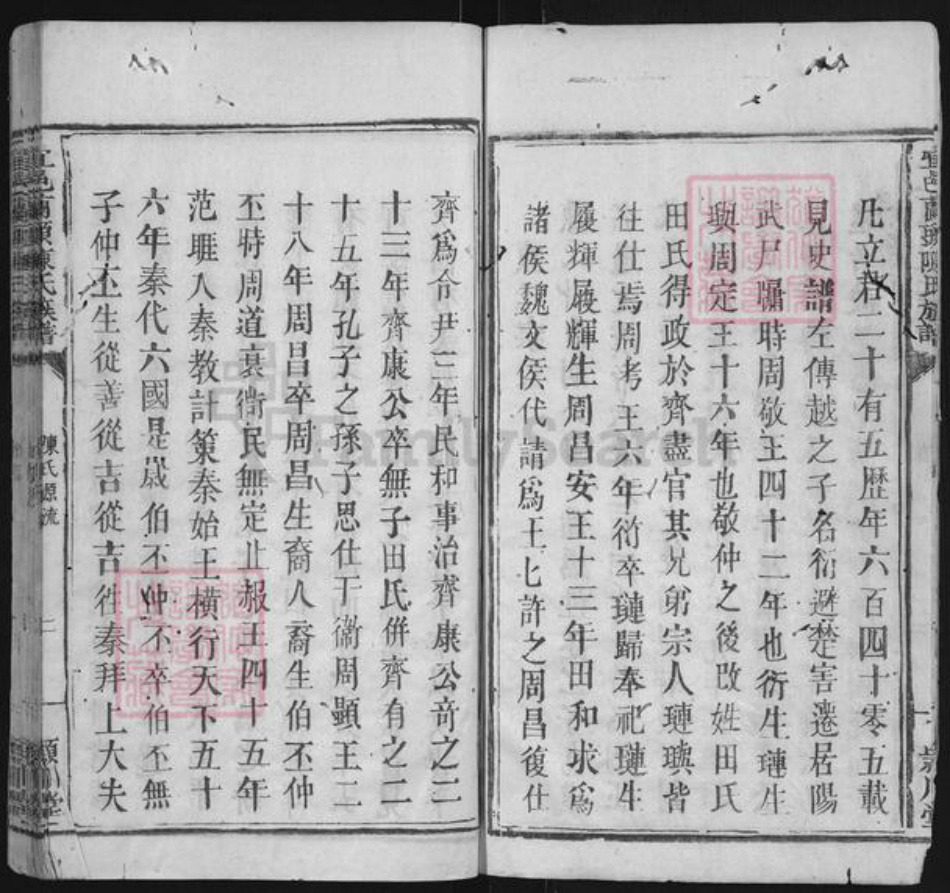 凡立君二十有五歷年六百四十零五載
見史譜左傳越之子名衍避楚害遷居陽
武戶牖時周敬王四十二年也衍生璉生
璵周定王十六年也敬仲之後改姓田氏
田氏得政於齊盡官其兄弟宗人璉璵皆
往仕焉周考王六年衍卒璉歸奉祀璉生
履輝履輝生周昌安王十三年田和求爲
諸侯魏文侯代請爲王七許之周昌復仕
齊爲令尹三年民和事治齊康公竒之二
十三年齊康公卒無子田氏併齊有之二
十五年孔子之孫子思仕于衞周顯王二
十八年周昌卒周昌生裔人裔生伯丕仲
丕時周道衰衞民無定止赧王四十五年
范睢入秦教計策秦始王橫行天下五十
六年秦代六國是歲伯丕仲丕卒伯丕無
子仲丕生從善從吉從吉徃秦拜上大夫
宜邑南頭陳氏族譜
陳氏源流
二
穎川堂